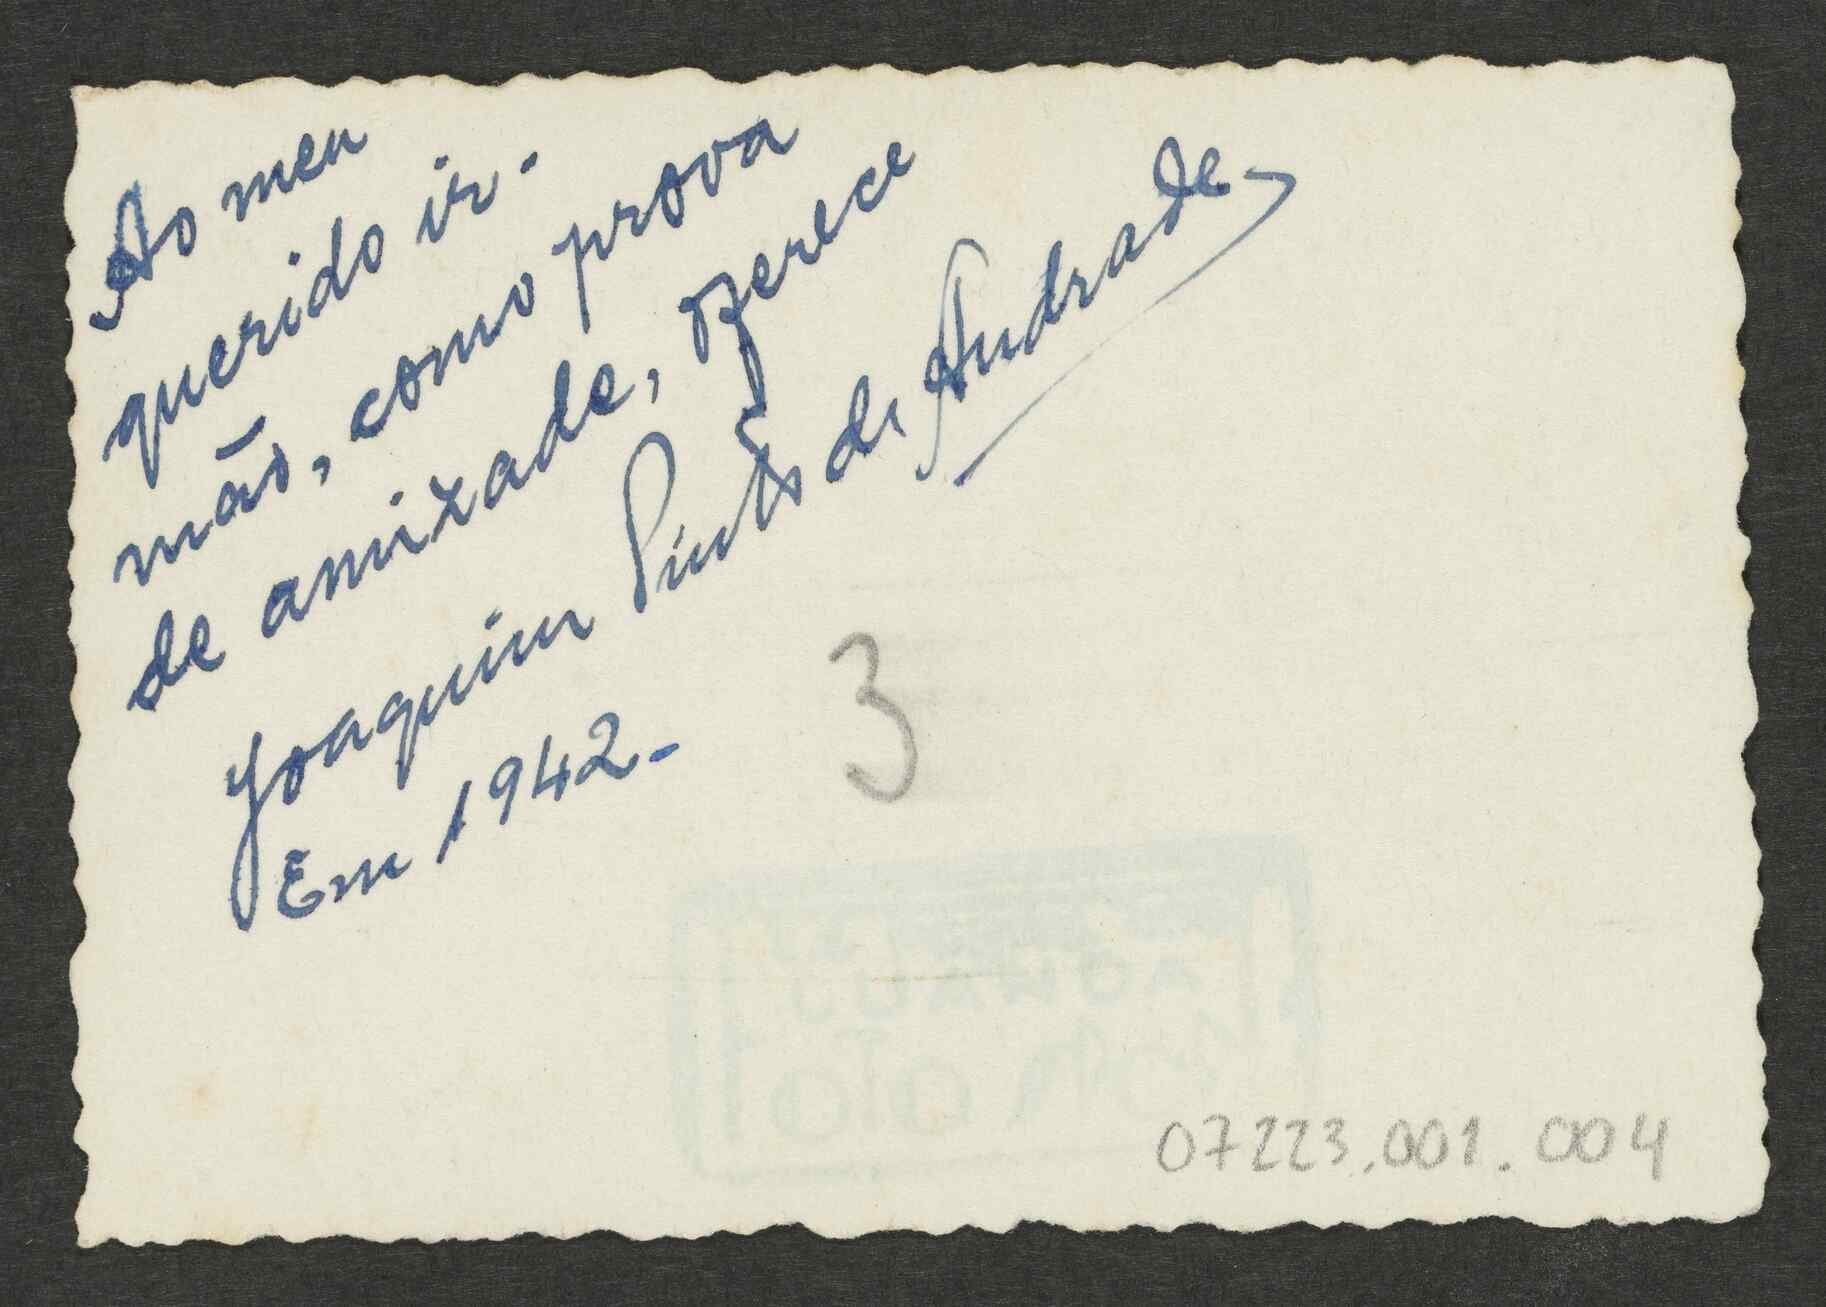 Ao meu
querido ir-
mão, como prova
de amizade, oferece
Joaquim Pinto de Andrade
Em 1942-
3
LUANDA
07223.001.004